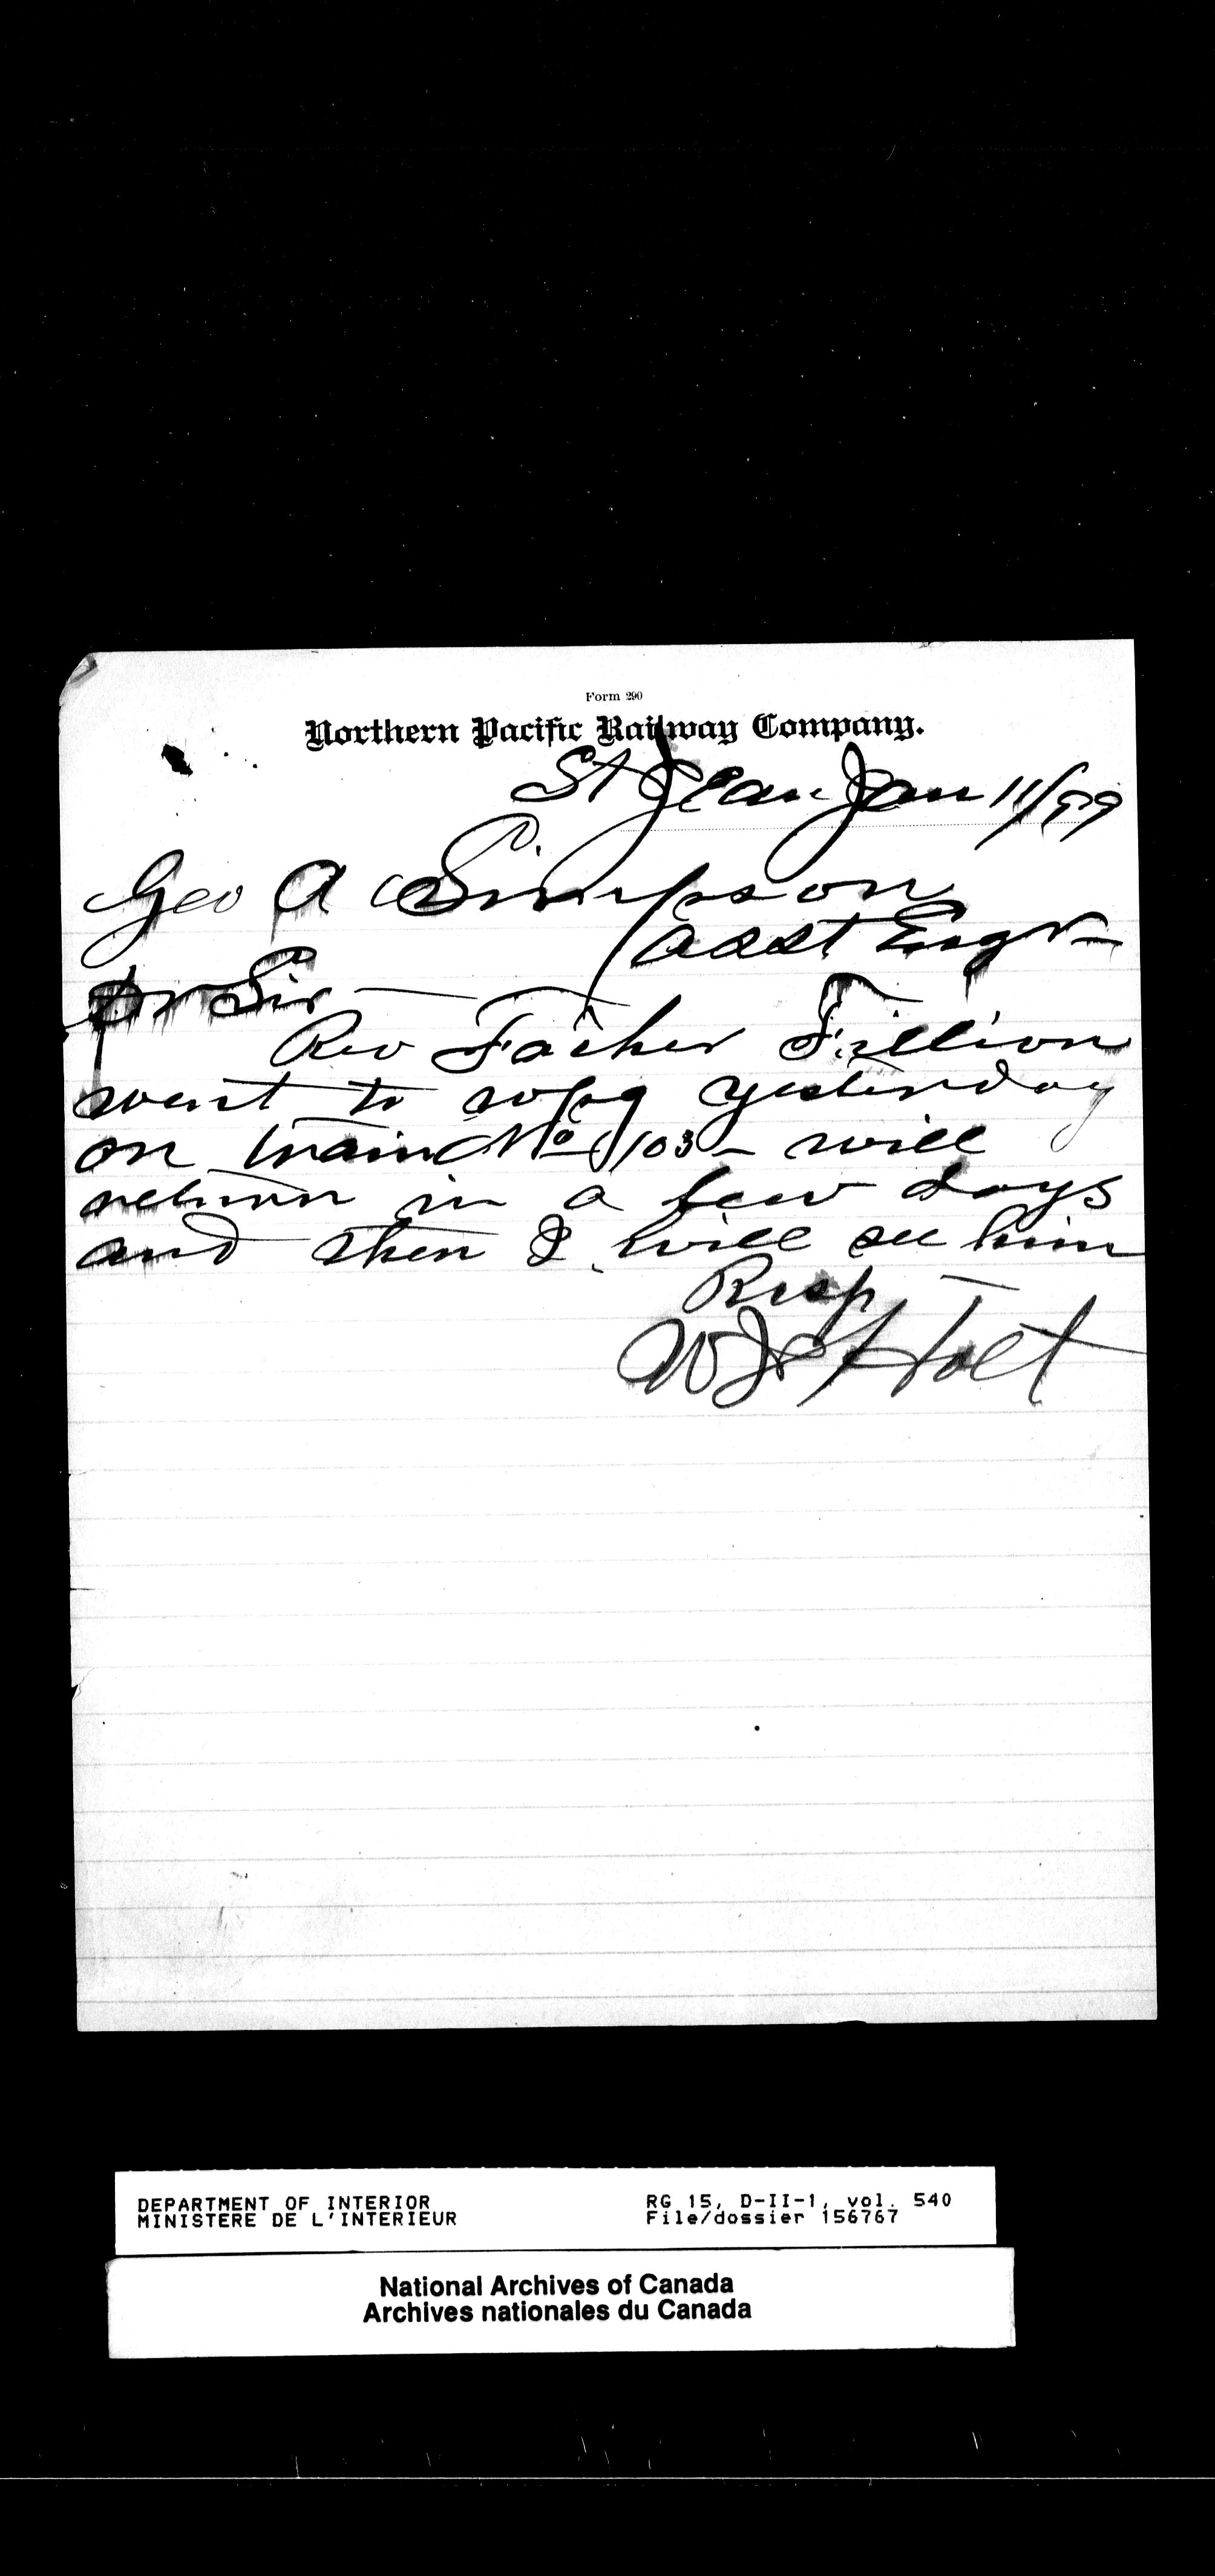 Form 290
Northern Pacific Railway Company.
St Jean Jan 11/99
Geo A Simpson
Asst Engr-
Dr Sir —
Rev Father Fillion
went to wpg yesterday
on train No 103 - will
return in a few days
and then I will see him
Resp
Holt
DEPARTMENT OF INTERIOR
MINISTERE DE L'INTERIEUR
RG 15, D-II-1, vol. 540
File/dossier 156767
National Archives of Canada
Archives nationales du Canada